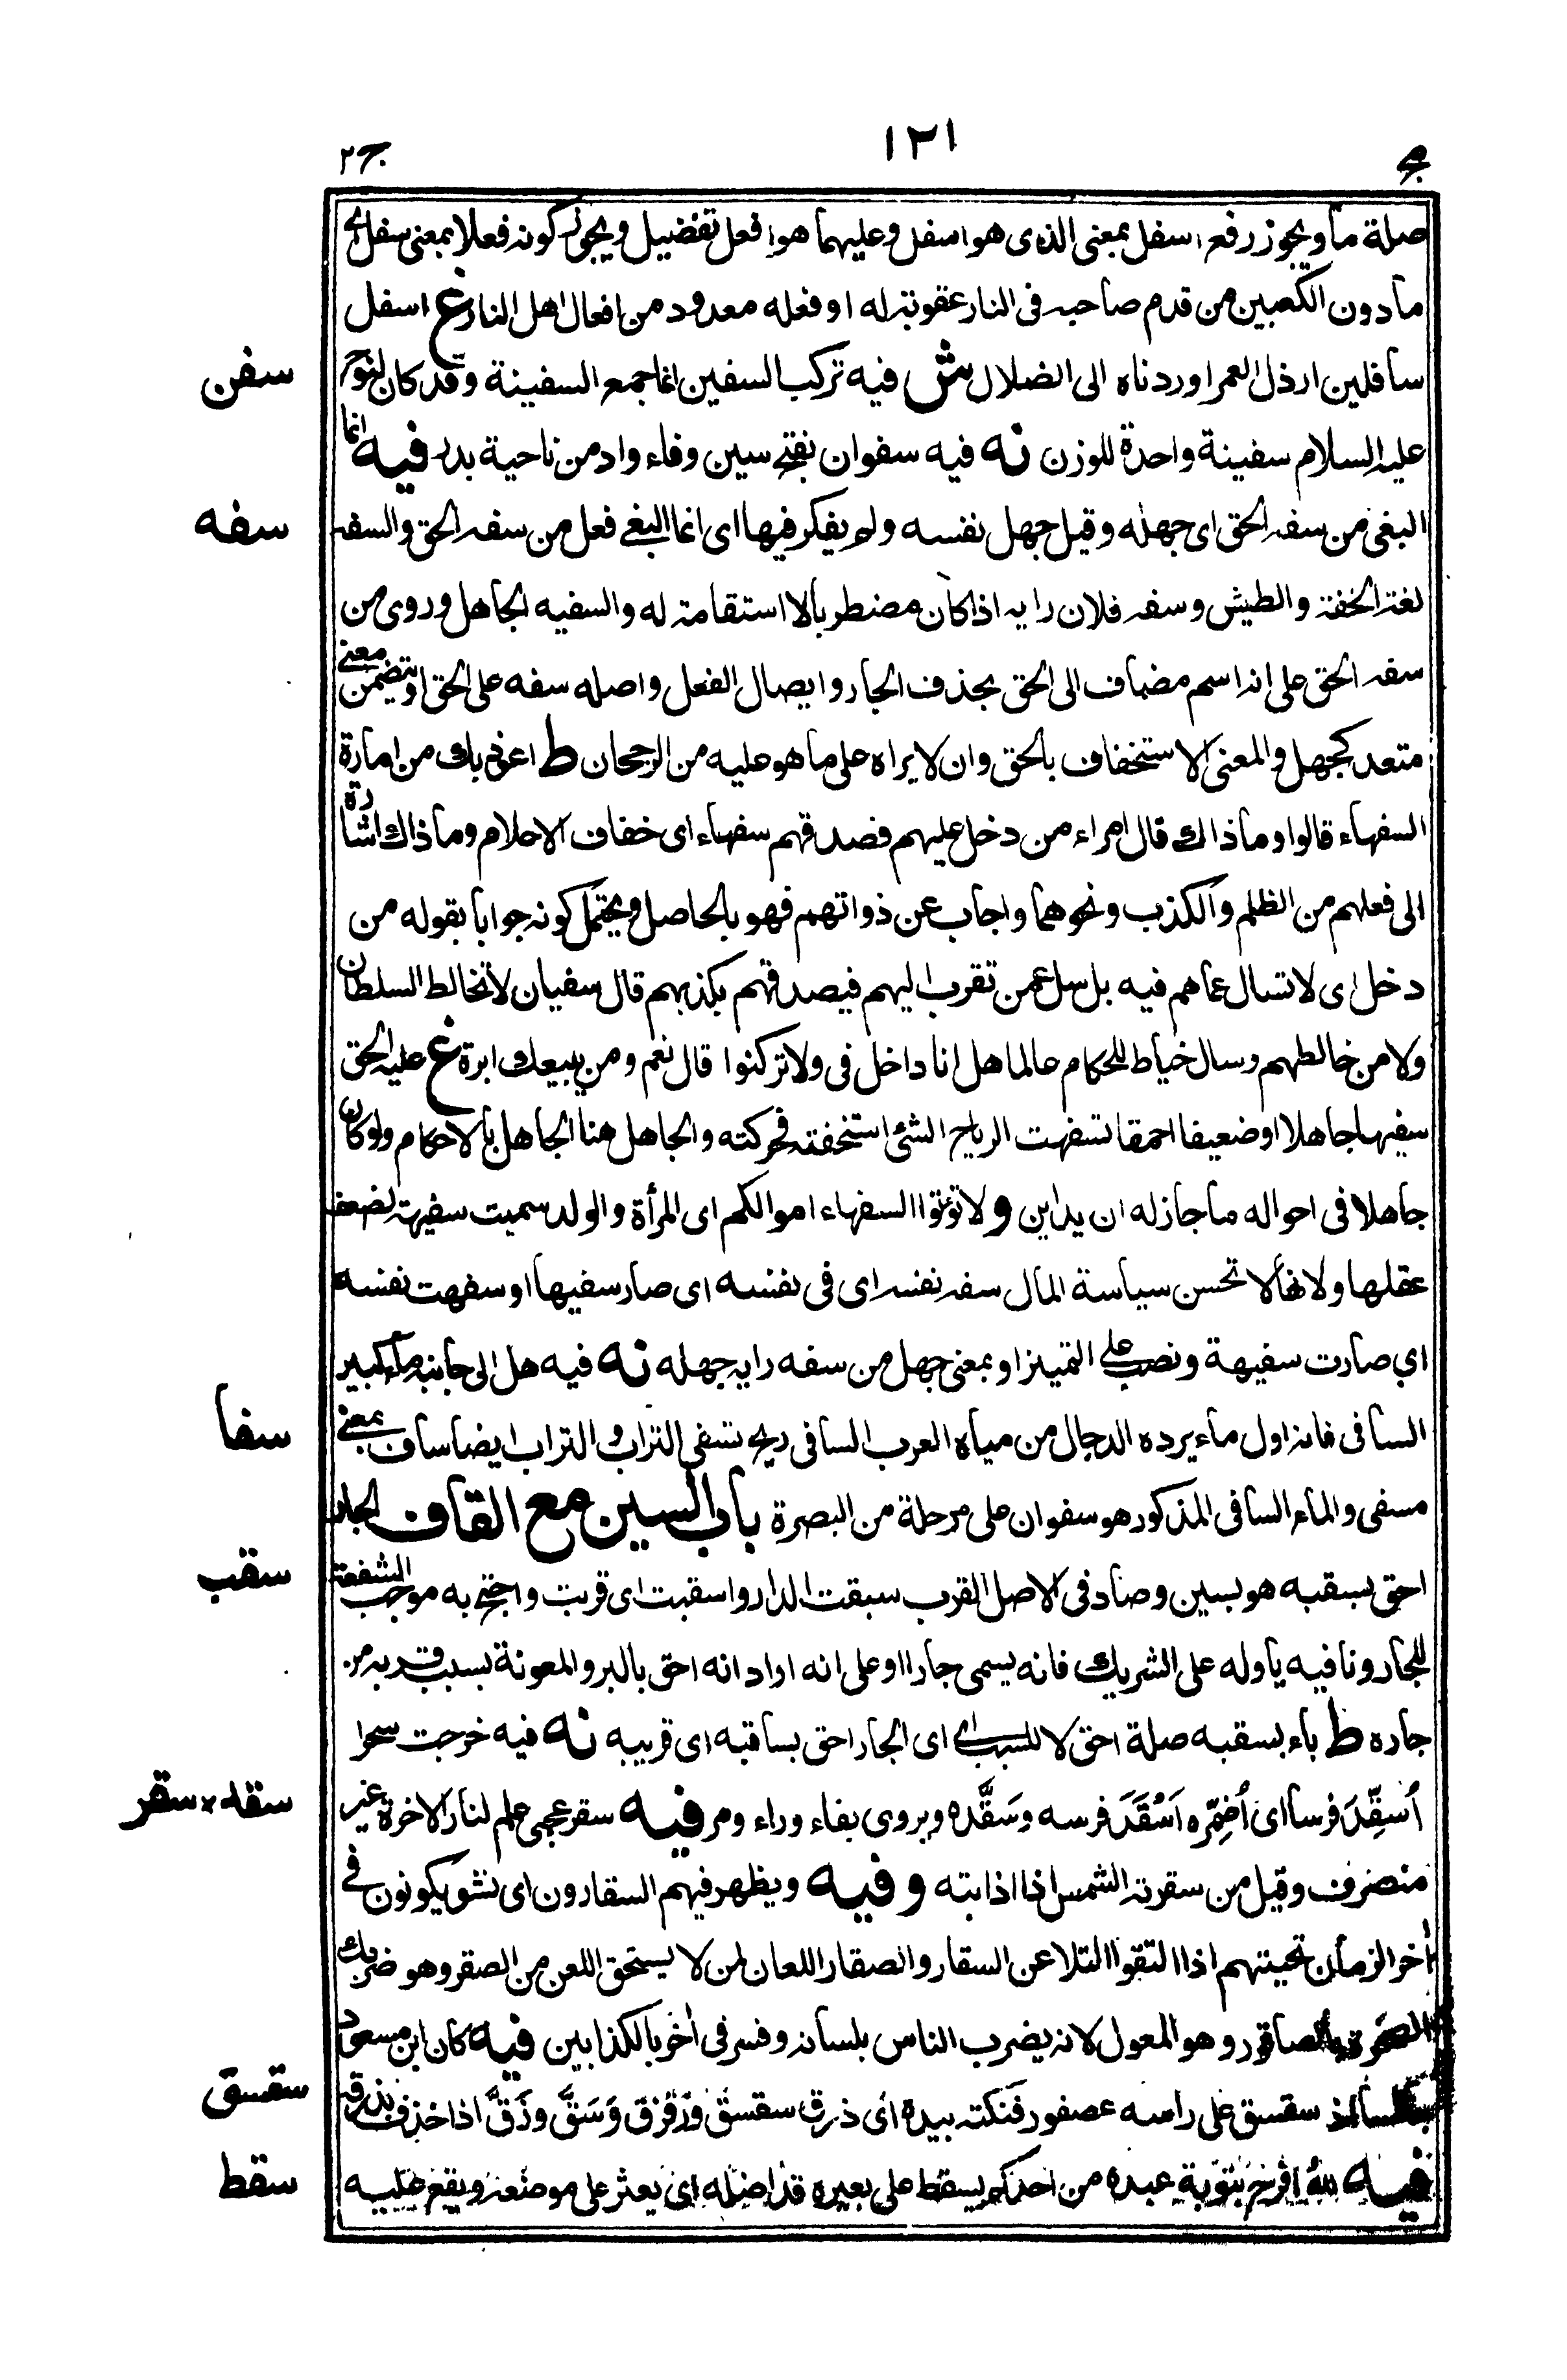 مج ١٢١ ج٢
صلة ما ويجوز رفع اسفل بمعنى الذى هو اسفل وعليهما هو افعل تفضيل ويجوز كونه فعلا بمعنى سفل اى
ما دون الكعبين من قدم صاحبه فى النار عقوبة له او فعله معدود من افعال اهل النار غ اسفل
سافلين ارذل العمر او رددناه الى الضلال ش فيه تركب السفين انما جمع السفينة وقد كان لنوح
سفن
عليه السلام سفينة واحدة للوزن نه فيه سفوان بفتح سين وفاء واد من ناحية بدر فيه انما
البغى من سفه الحق اى جهله وقيل جهل نفسه ولم يفكر فيها اى انما البغى فعل من سفه الحق والسفه
سفه
لغة الخفة والطيش وسفه فلان رايه اذا كان مضطربا لا استقامة له والسفيه الجاهل وروى من
سفه الحق على انه اسم مضاف الى الحق بحذف الجار وايصال الفعل واصله سفه على الحق او يتضمن معنى
متعد كجهل والمعنى الاستخفاف بالحق وان لا يراه على ما هو عليه من الرجحان ط اعوذ بك من امارة
السفهاء قالوا وما ذاك قال امراء من دخل عليهم فصدقهم سفهاء اى خفاف الاحلام وما ذاك اشارة
الى فعلهم من الظلم والكذب ونحوهما واجاب عن ذواتهم فهو بالحاصل ويحتمل كونه جوابا بقوله من
دخل اى لا تسال عما هم فيه بل سل عمن تقرب اليهم فيصدقهم بكذبهم قال سفيان لا تخالط السلطان
ولا من خالطهم وسال خياط للحكام عالما هل انا داخل فى ولا تركنوا قال نعم ومن يبيعك ابرة غ عليه الحق
سفيها جاهلا او ضعيفا احمقا تسفهت الرياح الشئ استخفته فحركته والجاهل هنا الجاهل بالاحكام ولو كان
جاهلا فى احواله ما جاز له ان يداين و لا تؤتوا السفهاء اموالكم اى المرأة والولد سميت سفيهة لضعف
عقلها ولانها لا تحسن سياسة المال سفه نفسه اى فى نفسه اى صار سفيها او سفهت نفسه
اي صارت سفيهة ونصب على التمييز او بمعنى جهل من سفه رايه جهله نه فيه هل الى جانبه ماء كبير
السافى فانه اول ماء يرده الدجال من مياه العرب السافى ريح تسفى التراب و التراب ايضا ساف بمعنى
سفا
مسفى والماء السافى المذكور هو سفوان على مرحلة من البصرة باب السين مع القاف الجار
احق بسقبه هو بسين وصاد فى الاصل القرب سبقت الدار واسقبت اى قربت واحتج به موجب الشفعة
سقب
للجار ونافيه ياوله على الشريك فانه يسمى جارا او على انه اراد انه احق بالبر والمعونة بسبب قربه من
جاره ط باء بسقبه صلة احق لا للسبب اى اى الجار احق بساقبه اى قريبه نه فيه خرجت سحرا
أسقّد فرسا اى أضمّره اَسْقَدَ فرسه وسَقَّده ويروى بفاء وراء ومر فيه سقر عجمى علم لنار الاخرة غير
سقد سقر
منصرف وقيل من سقرته الشمس اذا اذابته و فيه ويظهر فيهم السقارون اى نشو يكونون فى
أخر الزمان تحيتهم اذا التقوا التلاعن السقار والصقار اللعان لمن لا يستحق اللعن من الصقر وهو ضربك
الصخرة بالصاقور وهو المعول لانه يضرب الناس بلسانه وفسر فى أخر بالكذابين فيه كان ابن مسعود
اذ سقسق على راسه عصفور فنكته بيده اى ذرق سقسق وزقزق وَسَقَّ وزَقَّ اذا خذف بذرقه
سقسق
فيه لله افرح بتوبة عبده من احدكم يسقط على بعيره قد اضله اى يعثر على موضعه ويقع عليه
سقط